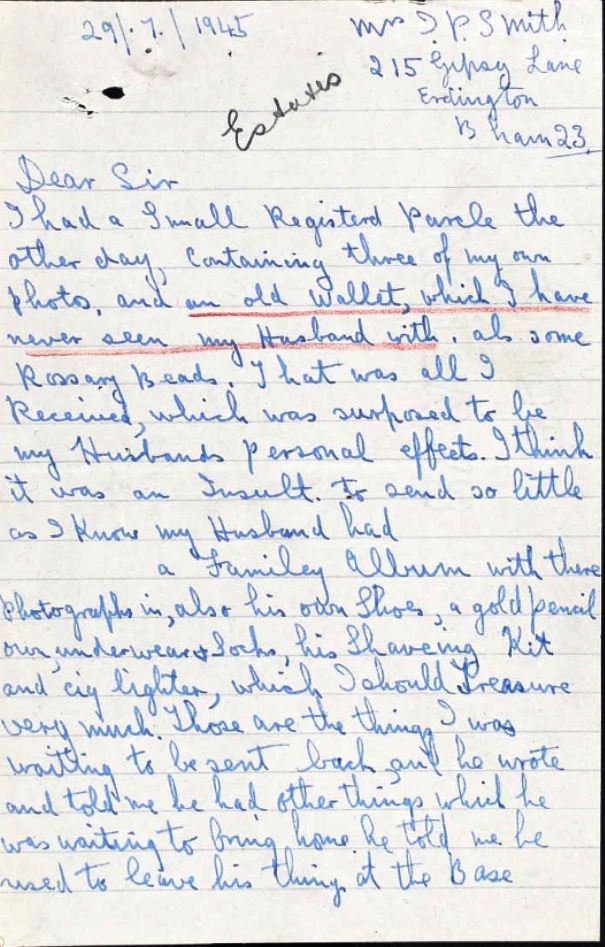 29/.7./1945
Mrs I. P. Smith
215 Gipsy Lane
Erdington
B'ham 23.
Estates
Dear Sir
I had a Small Registerd Parcle the
other day, Containing three of my own
Photo, and an old Wallet, which I have
never seen my Husband with. als some
Rossary Beads. That was all I
Received, which was surposed to be
my Husbands Personal effects. I think
it was an Insult. to send so little
as I Know my Husband had
a Familey Album with there
Photographs in, also his own Shoes, a gold pencil
own underwear & Socks, his Shaveing Kit
and cig lighter, which I should Treasure
very much. Those are the things I was
waitting to be sent back, and he wrote
and told me he had other things which he
was waiting to bring home. he told me he
used to leave his things at the Base